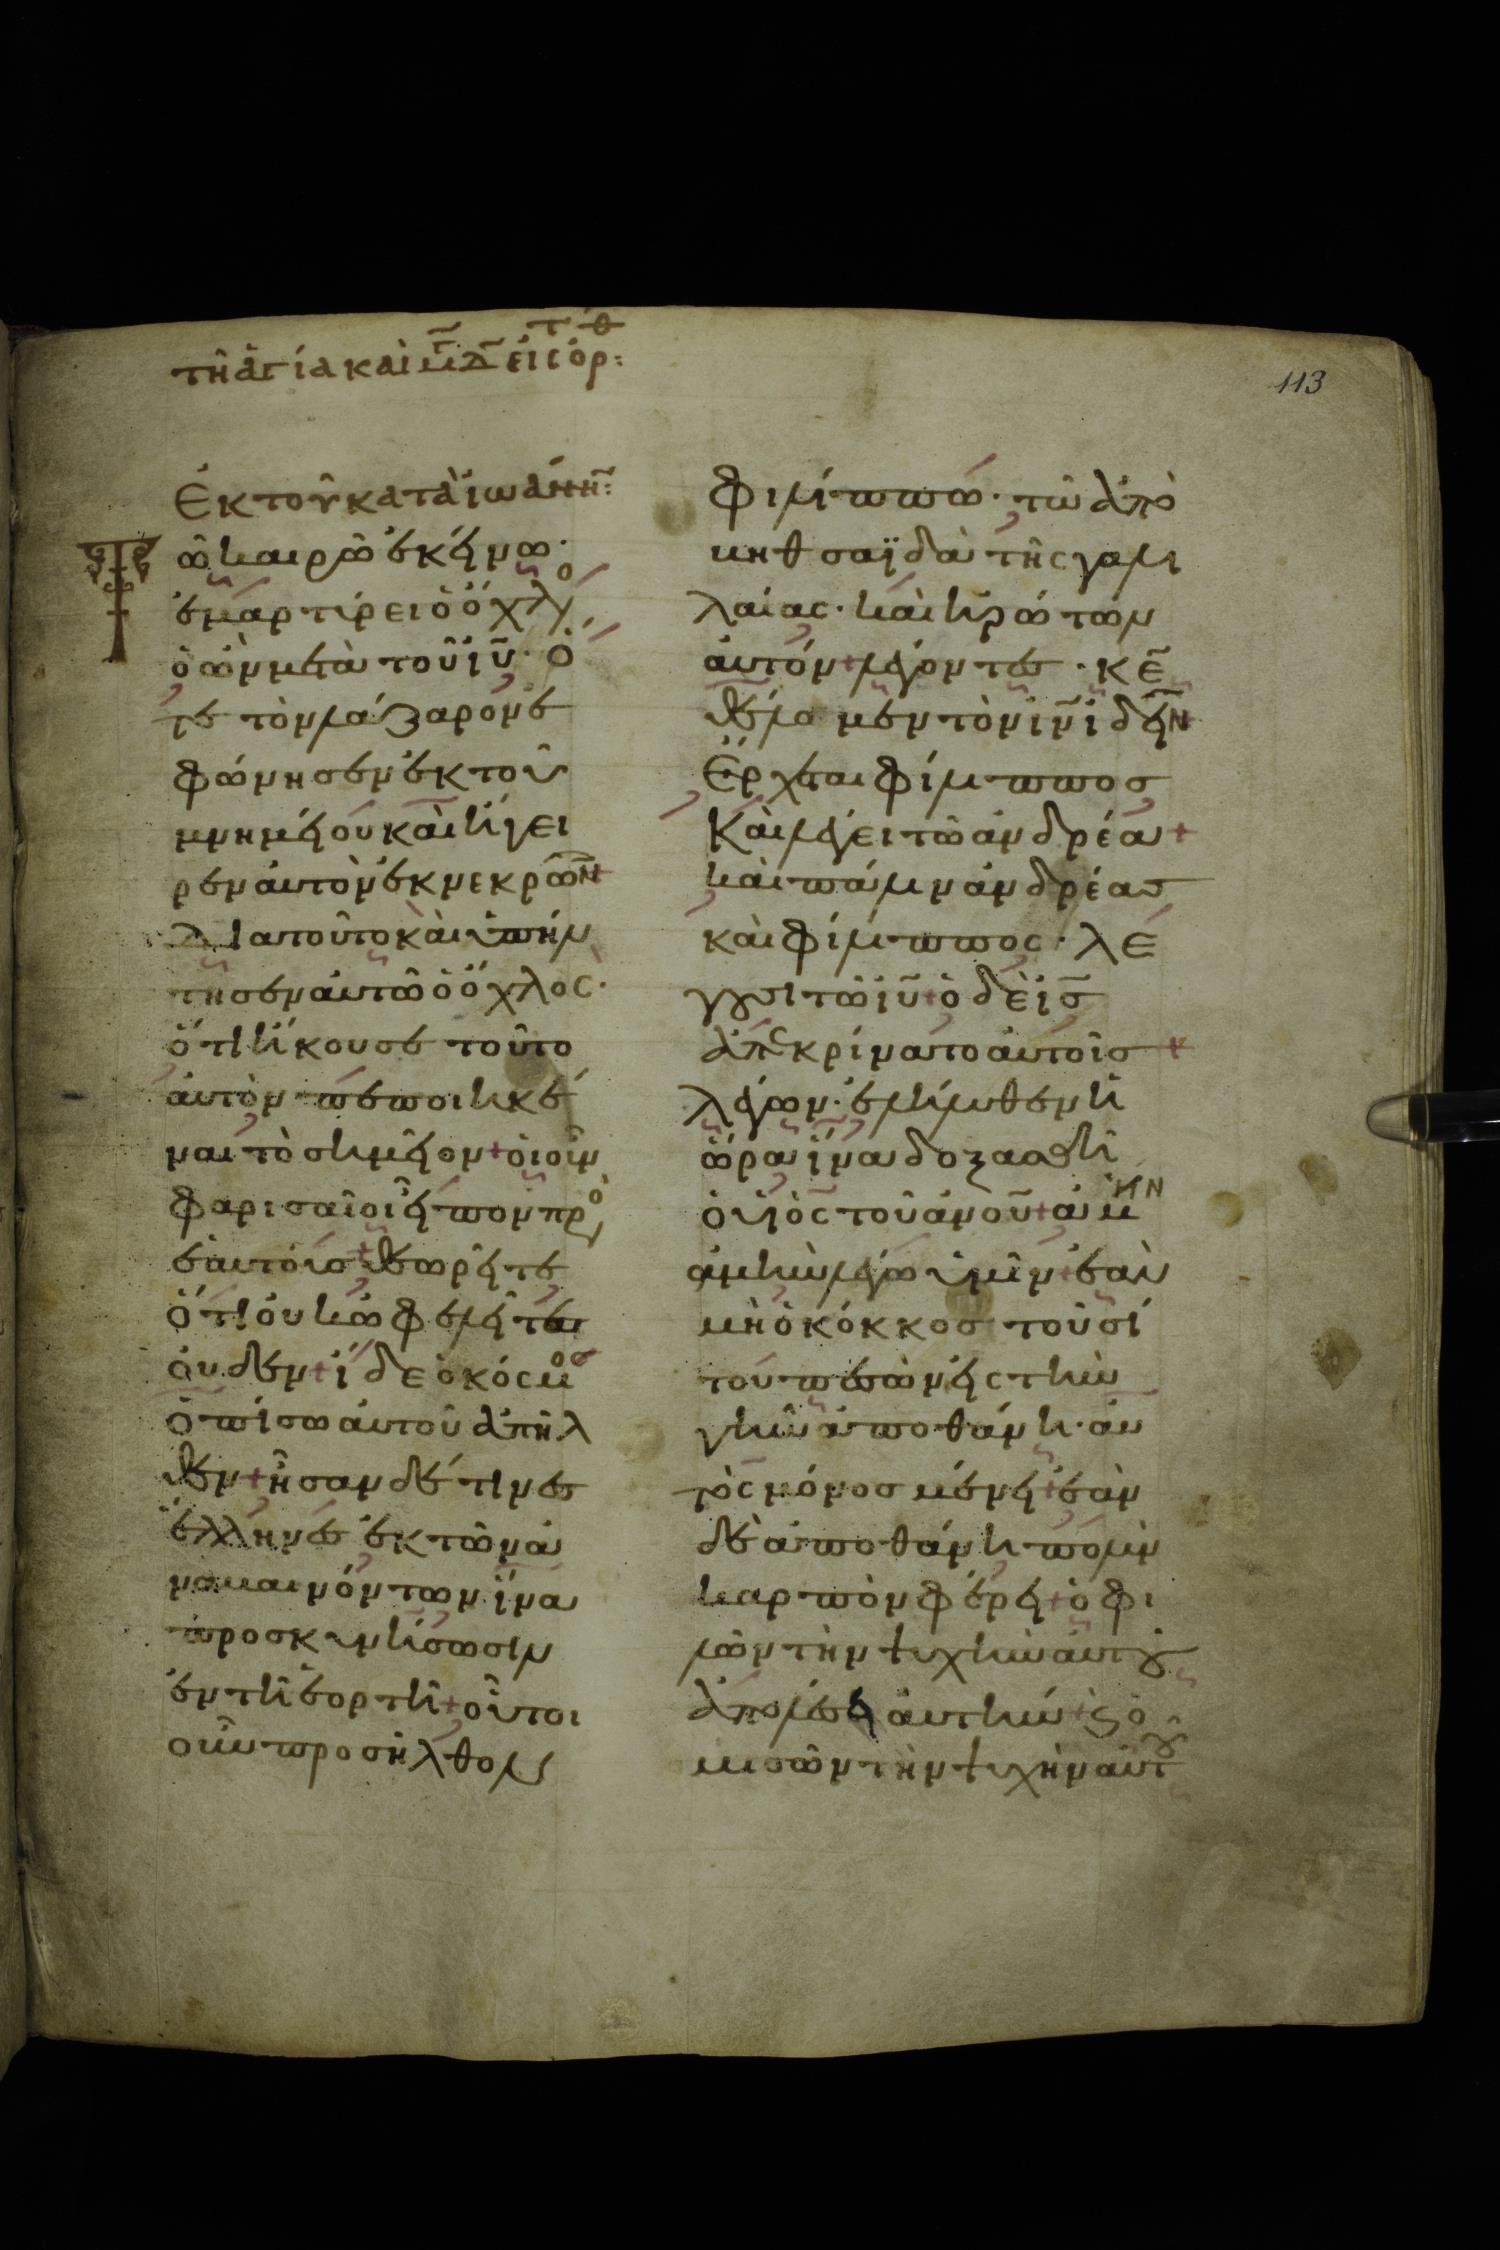 τῆ ἁγία καὶ μ δ εἰς τ ὀρθ:
113
Ἐκ τοῦ κατὰ ἰωάννην:
Τῶ καιρῶ ἐκείνω·
ἐμαρτύρει ὁ ὄχλος
ὁ ὢν μετὰ τοῦ ἰῦ· ὅ
τε τὸν λάζαρον ἐ
φώνησεν ἐκ τοῦ
μνημείου καὶ ἤγει
ρεν αὐτὸν ἐκ νεκρῶν
διατοῦτο καὶ ὑπήν
τησεν αὐτῶ ὁ ὄχλος·
ὅτι ἤκουσε τοῦτο
αὐτὸν πεποιηκέ
ναι τὸ σημεῖον+ οἱ οὖν
φαρισαῖοι εἶπον πρὸ
ς αὐτοὺς+ θεωρεῖτε
ὅτι οὐκ ὠφελεῖται
οὐδέν+ ἴδε ὁ κόσμος
ὀπίσω αὐτοῦ ἀπῆλ
θεν+ ἦσαν δέ τινες
ἕλληνες ἐκ τῶν ἀ
ναβαινόντων ἵνα
προσκυνήσωσιν
ἐν τῆ ἑορτῆ+ οὗτοι
οὖν προσῆλθον
φιλίππω· τῶ ἀπὸ
βηθσαϊδὰ τῆς γαλι
λαίας· καὶ ἠρώτων
αὐτόν+ λέγοντες· κε̄
θέλομεν τὸν ἰν̄ ἰδεῖν
Ἔρχεται φίλιππος
καὶ λέγει τῶ ἀνδρέα+
καὶ πάλιν ἀνδρέας
καὶ φίλιππος· λέ
γουσι τῶ ἰῦ+ ὁ δὲ ἰς̄
ἀπεκρίνατο αὐτοῖς+
λέγων· ἐλήλυθεν ἡ
ὥρα ἵνα δοξασθῆ
ὁ υἱὸς τοῦ ἀνοῦ+ ἀμὴν
ἀμὴν λέγω ὑμῖν+ ἐὰν
μὴ ὁ κόκκος τοῦ σί
του πεσὼν εἰς τὴν
γῆν ἀποθάνη· αὐ
τὸς μόνος μένει+ ἐὰν
δὲ ἀποθάνη πολὺν
καρπὸν φέρει+ ὁ φι
λῶν τὴν ψυχὴν αὐτοῦ
ἀπολέσει αὐτήν+ ϗ ὁ
μισῶν τὴν ψυχὴν αὐτοῦ